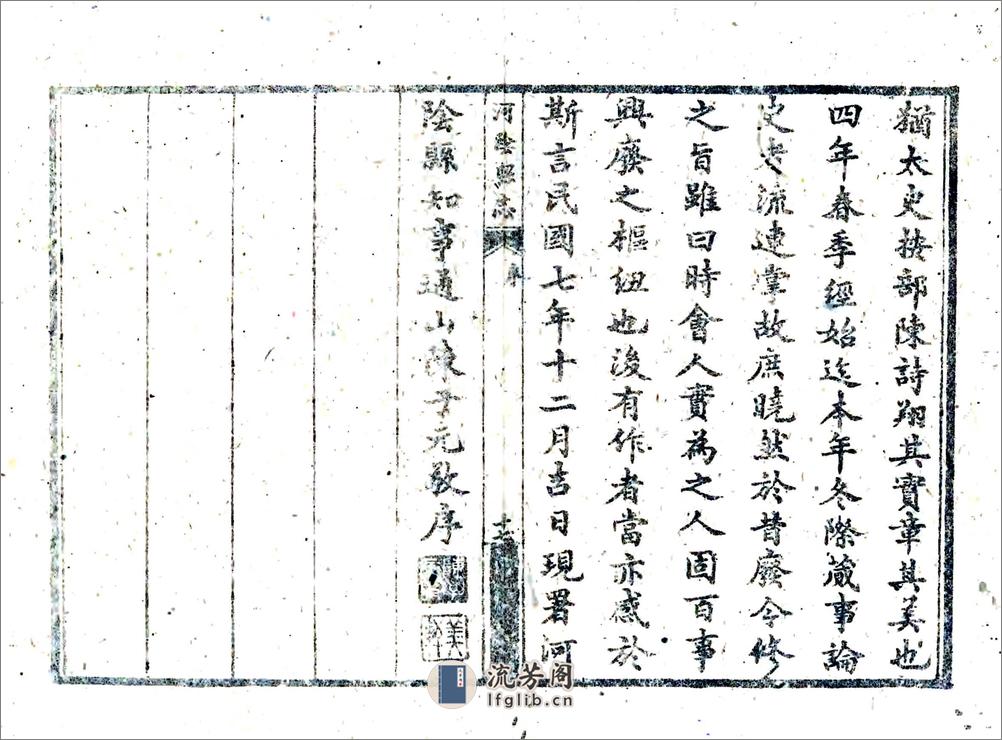 猶太史按部陳詩翔其實章其美也
四年春季經始迄本年冬際蕆事論
史者流連掌故庶曉然於昔廢今修
之旨雖曰時會人實為之人固百事
興廢之樞紐也後有作者當亦感於
斯言民國七年十二月吉日現署河
河陰縣志
序
陰縣知事通山陳子元敬序
流芳阁
lfglib.cn